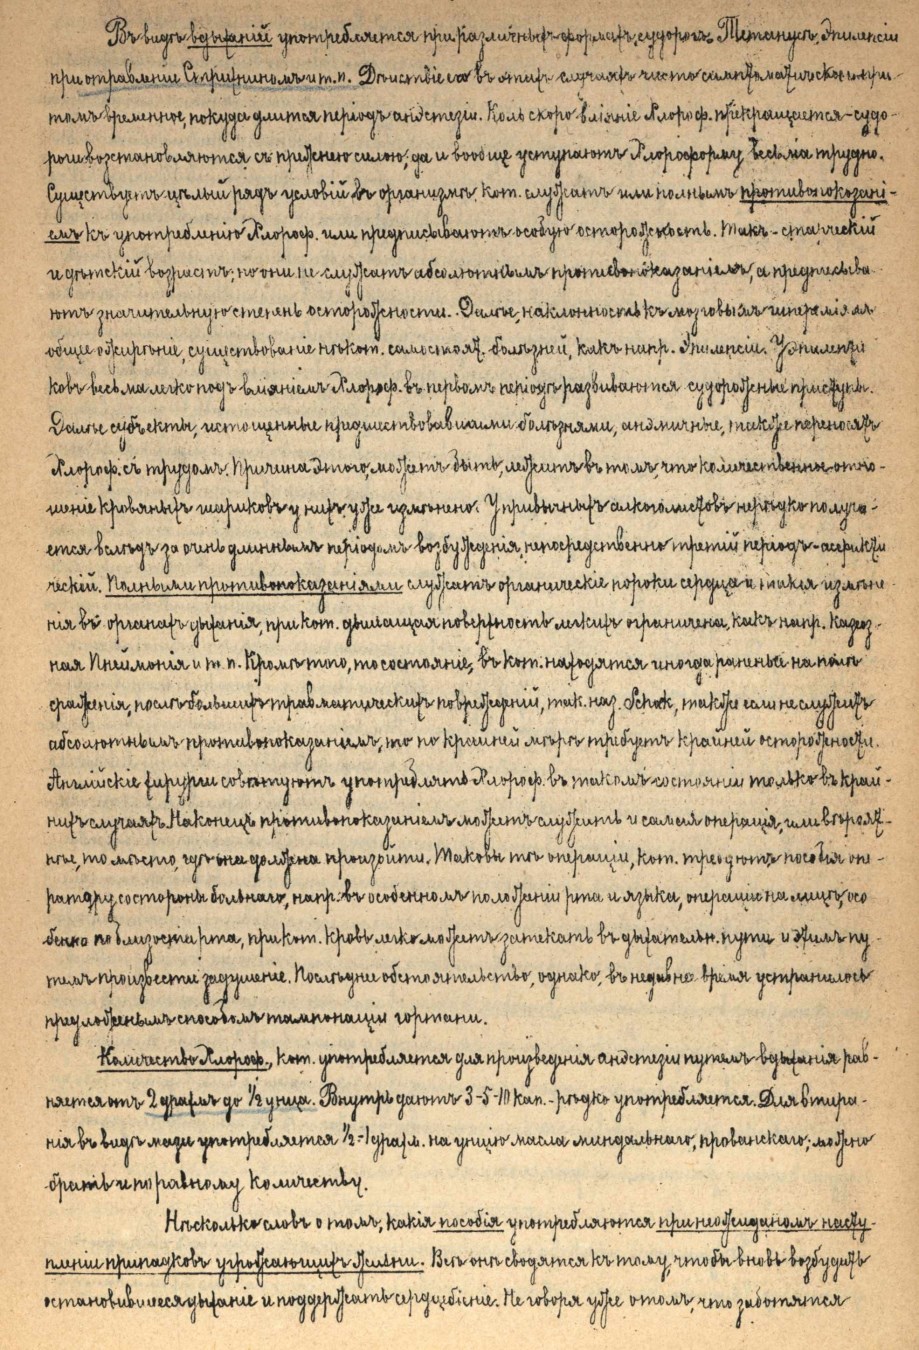 Въ видѣ вдыханій употребляется при различныхъ формахъ судорогъ, Тетанусъ, Эпилепсіи
при отравленіи Стрихниномъ и т.п. Дѣйствіе его въ этихъ случаяхъ чисто симптоматическое и при-
томъ временное, покуда длится періодъ анэстезіи. Коль скоро вліяніе Хлороф. прекращается – судо-
роги возстановляются съ прежнею силою, да и вообще уступаютъ Хлороформу весьма трудно.
Существуетъ цѣлый рядъ условій въ организмѣ, кот. служатъ или полнымъ противопоказані-
емъ къ употребленію Хлороф. или предписываютъ особую осторожность. Такъ – старческій
и дѣтскій возрастъ; но они не служатъ абсолютнымъ противопоказаніемъ, а предписыва-
ютъ значительную степень осторожности. Далѣе, наклонность къ мозговымъ гипереміямъ
общее ожирѣніе, существованіе нѣкот. самостоят. болѣзней, какъ напр. Эпилепсіи. У Эпилепти
ковъ весьма легко подъ вліяніемъ Хлороф. въ первомъ періодѣ развиваются судорожные приступы.
Далѣе субъекты, истощенные предшествовавшими болѣзнями, анэмичные, также переносятъ
Хлороф. съ трудомъ. Причина этого, можетъ быть, лежитъ въ томъ, что количественное отно-
шеніе кровяныхъ шариковъ у нихъ уже измѣнено. У привычныхъ алкоголистовъ нерѣдко получа-
ется вслѣдъ за очень длиннымъ періодомъ возбужденія, непосредственно третій періодъ – асфикти
ческій. Полными противопоказаніями служатъ органическіе пороки сердца и такія измѣне-
нія въ органахъ дыханія, при кот. дышащая поверхность легкихъ ограничена, какъ напр. Казеоз-
ная Пнеймонія и т.п. Кромѣ того, то состояніе, въ кот. находятся иногда раненые на полѣ
сраженія, послѣ большихъ травматическихъ поврежденій, так. наз. Schok, также если не служитъ
абсолютнымъ противопоказаніемъ, то по крайней мѣрѣ требуетъ крайней осторожности.
Англійскіе хирурги совѣтуютъ употреблять Хлороф. въ такомъ состояніи только въ край-
нихъ случаяхъ. Наконецъ противопоказаніемъ можетъ служить и самая операція, или вѣроят-
нѣе, то мѣсто, гдѣ она должна произойти. Таковы тѣ операціи, кот. требуютъ пособія опе-
ратору со стороны больнаго, напр. въ особенномъ положеніи рта и языка, операціи на лицѣ, осо
бенно по близости рта, при кот. кровь легко можетъ затекать въ дыхательн. пути и этимъ пу-
темъ произвести задушеніе. Послѣднее обстоятельство, однако, въ недавнее время устранилось
предложеннымъ способомъ тампонаціи гортани.
Количество Хлороф., кот. употребляется для произведенія анэстезіи путемъ вдыханія рав-
няется отъ 2 драхмъ до ½ унца. Внутрь даютъ 3-5-10 кап. – рѣдко употребляется. Для втира-
нія въ видѣ мази употребляется ½-1 драхм. на унцію масла миндальнаго, прованскаго; можно
брать и по равному количеству.
Нѣсколько словъ о томъ, какія пособія употребляются при неожиданомъ насту-
пленіи припадковъ угрожающихъ жизни. Всѣ онѣ сводятся къ тому, чтобы вновь возбудить
остановившееся дыханіе и поддержать сердцебіеніе. Не говоря уже о томъ, что заботятся